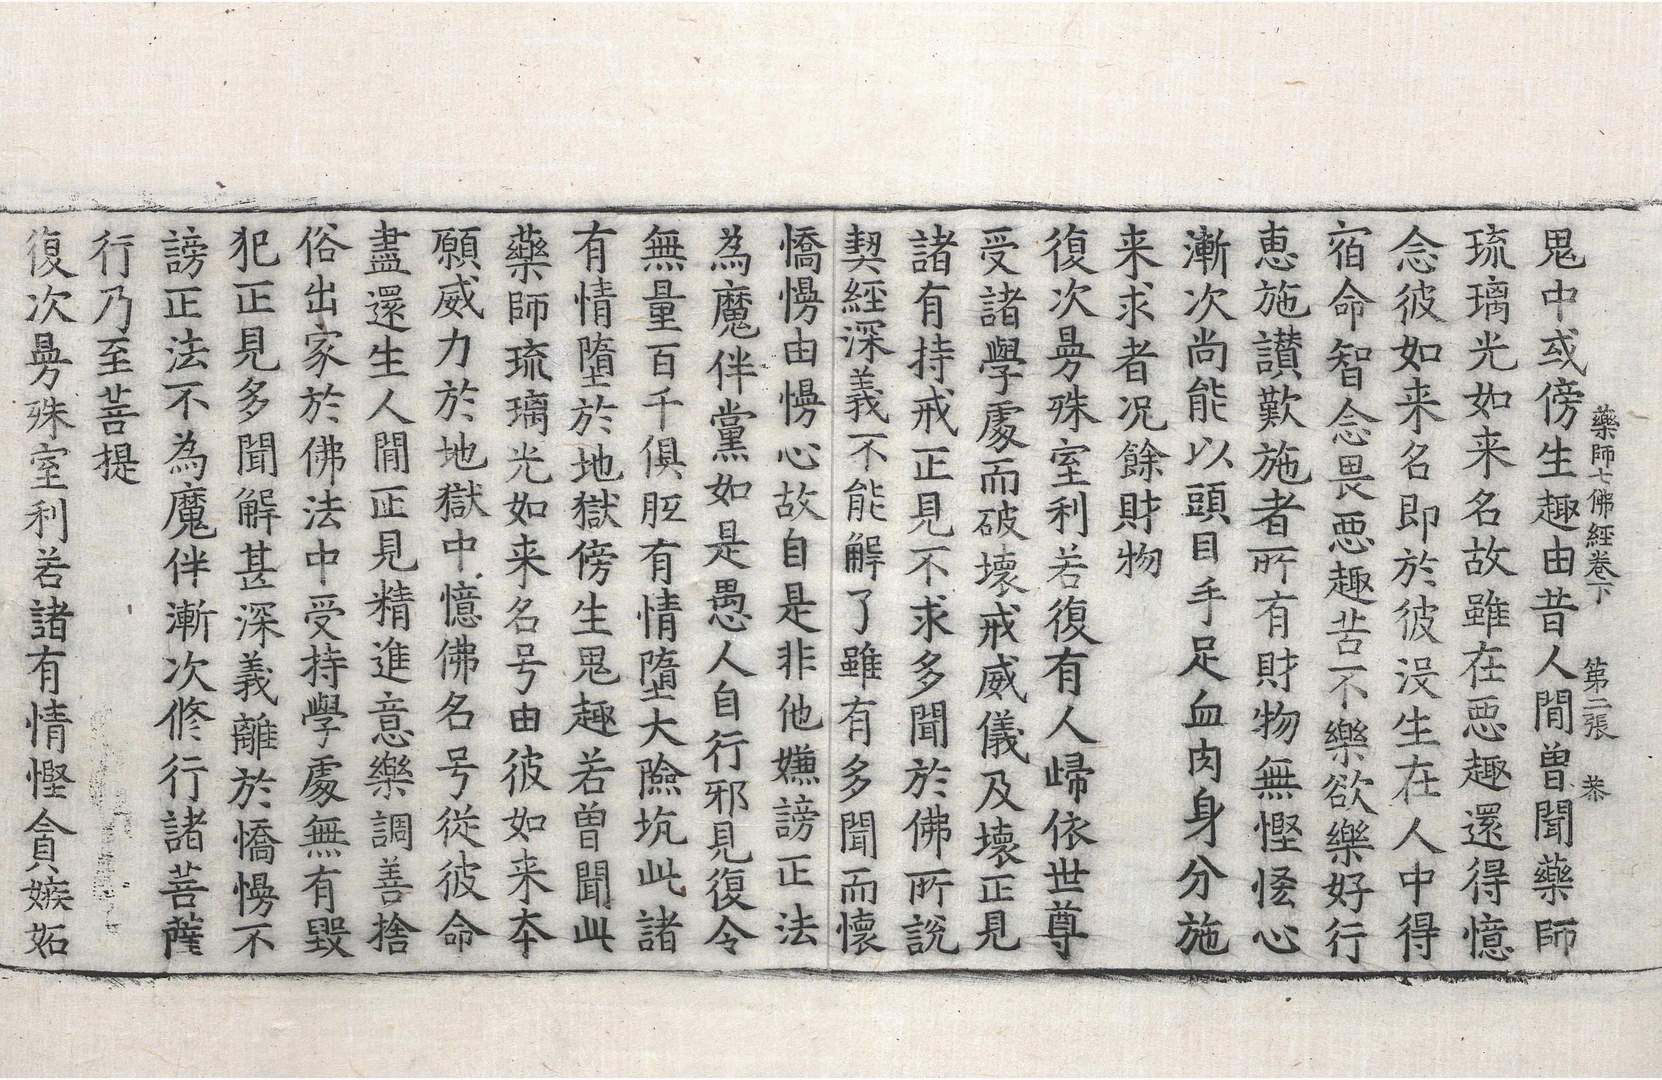 藥師七佛經卷下　第二張　恭
鬼中或傍生趣由昔人間曾聞藥師
琉璃光如来名故雖在惡趣還得憶
念彼如来名即於彼沒生在人中得
宿命智念畏惡趣苦不樂欲樂好行
惠施讃歎施者所有財物無慳悋心
漸次尚能以頭目手足血肉身分施
来求者况餘財物
復次曼殊室利若復有人歸依世尊
受諸學處而破壞戒威儀及壞正見
諸有持戒正見不求多聞於佛所說
契經深義不能解了雖有多聞而懷
憍慢由慢心故自是非他嫌謗正法
為魔伴黨如是愚人自行邪見復令
無量百千俱胝有情墮大險坑此諸
有情墮於地獄傍生鬼趣若曾聞此
藥師琉璃光如来名号由彼如来本
願威力於地獄中憶佛名号從彼命
盡還生人間正見精進意樂調善捨
俗出家於佛法中受持學處無有毀
犯正見多聞解甚深義離於憍慢不
謗正法不為魔伴漸次修行諸菩薩
行乃至菩提
復次曼殊室利若諸有情慳貪嫉妬